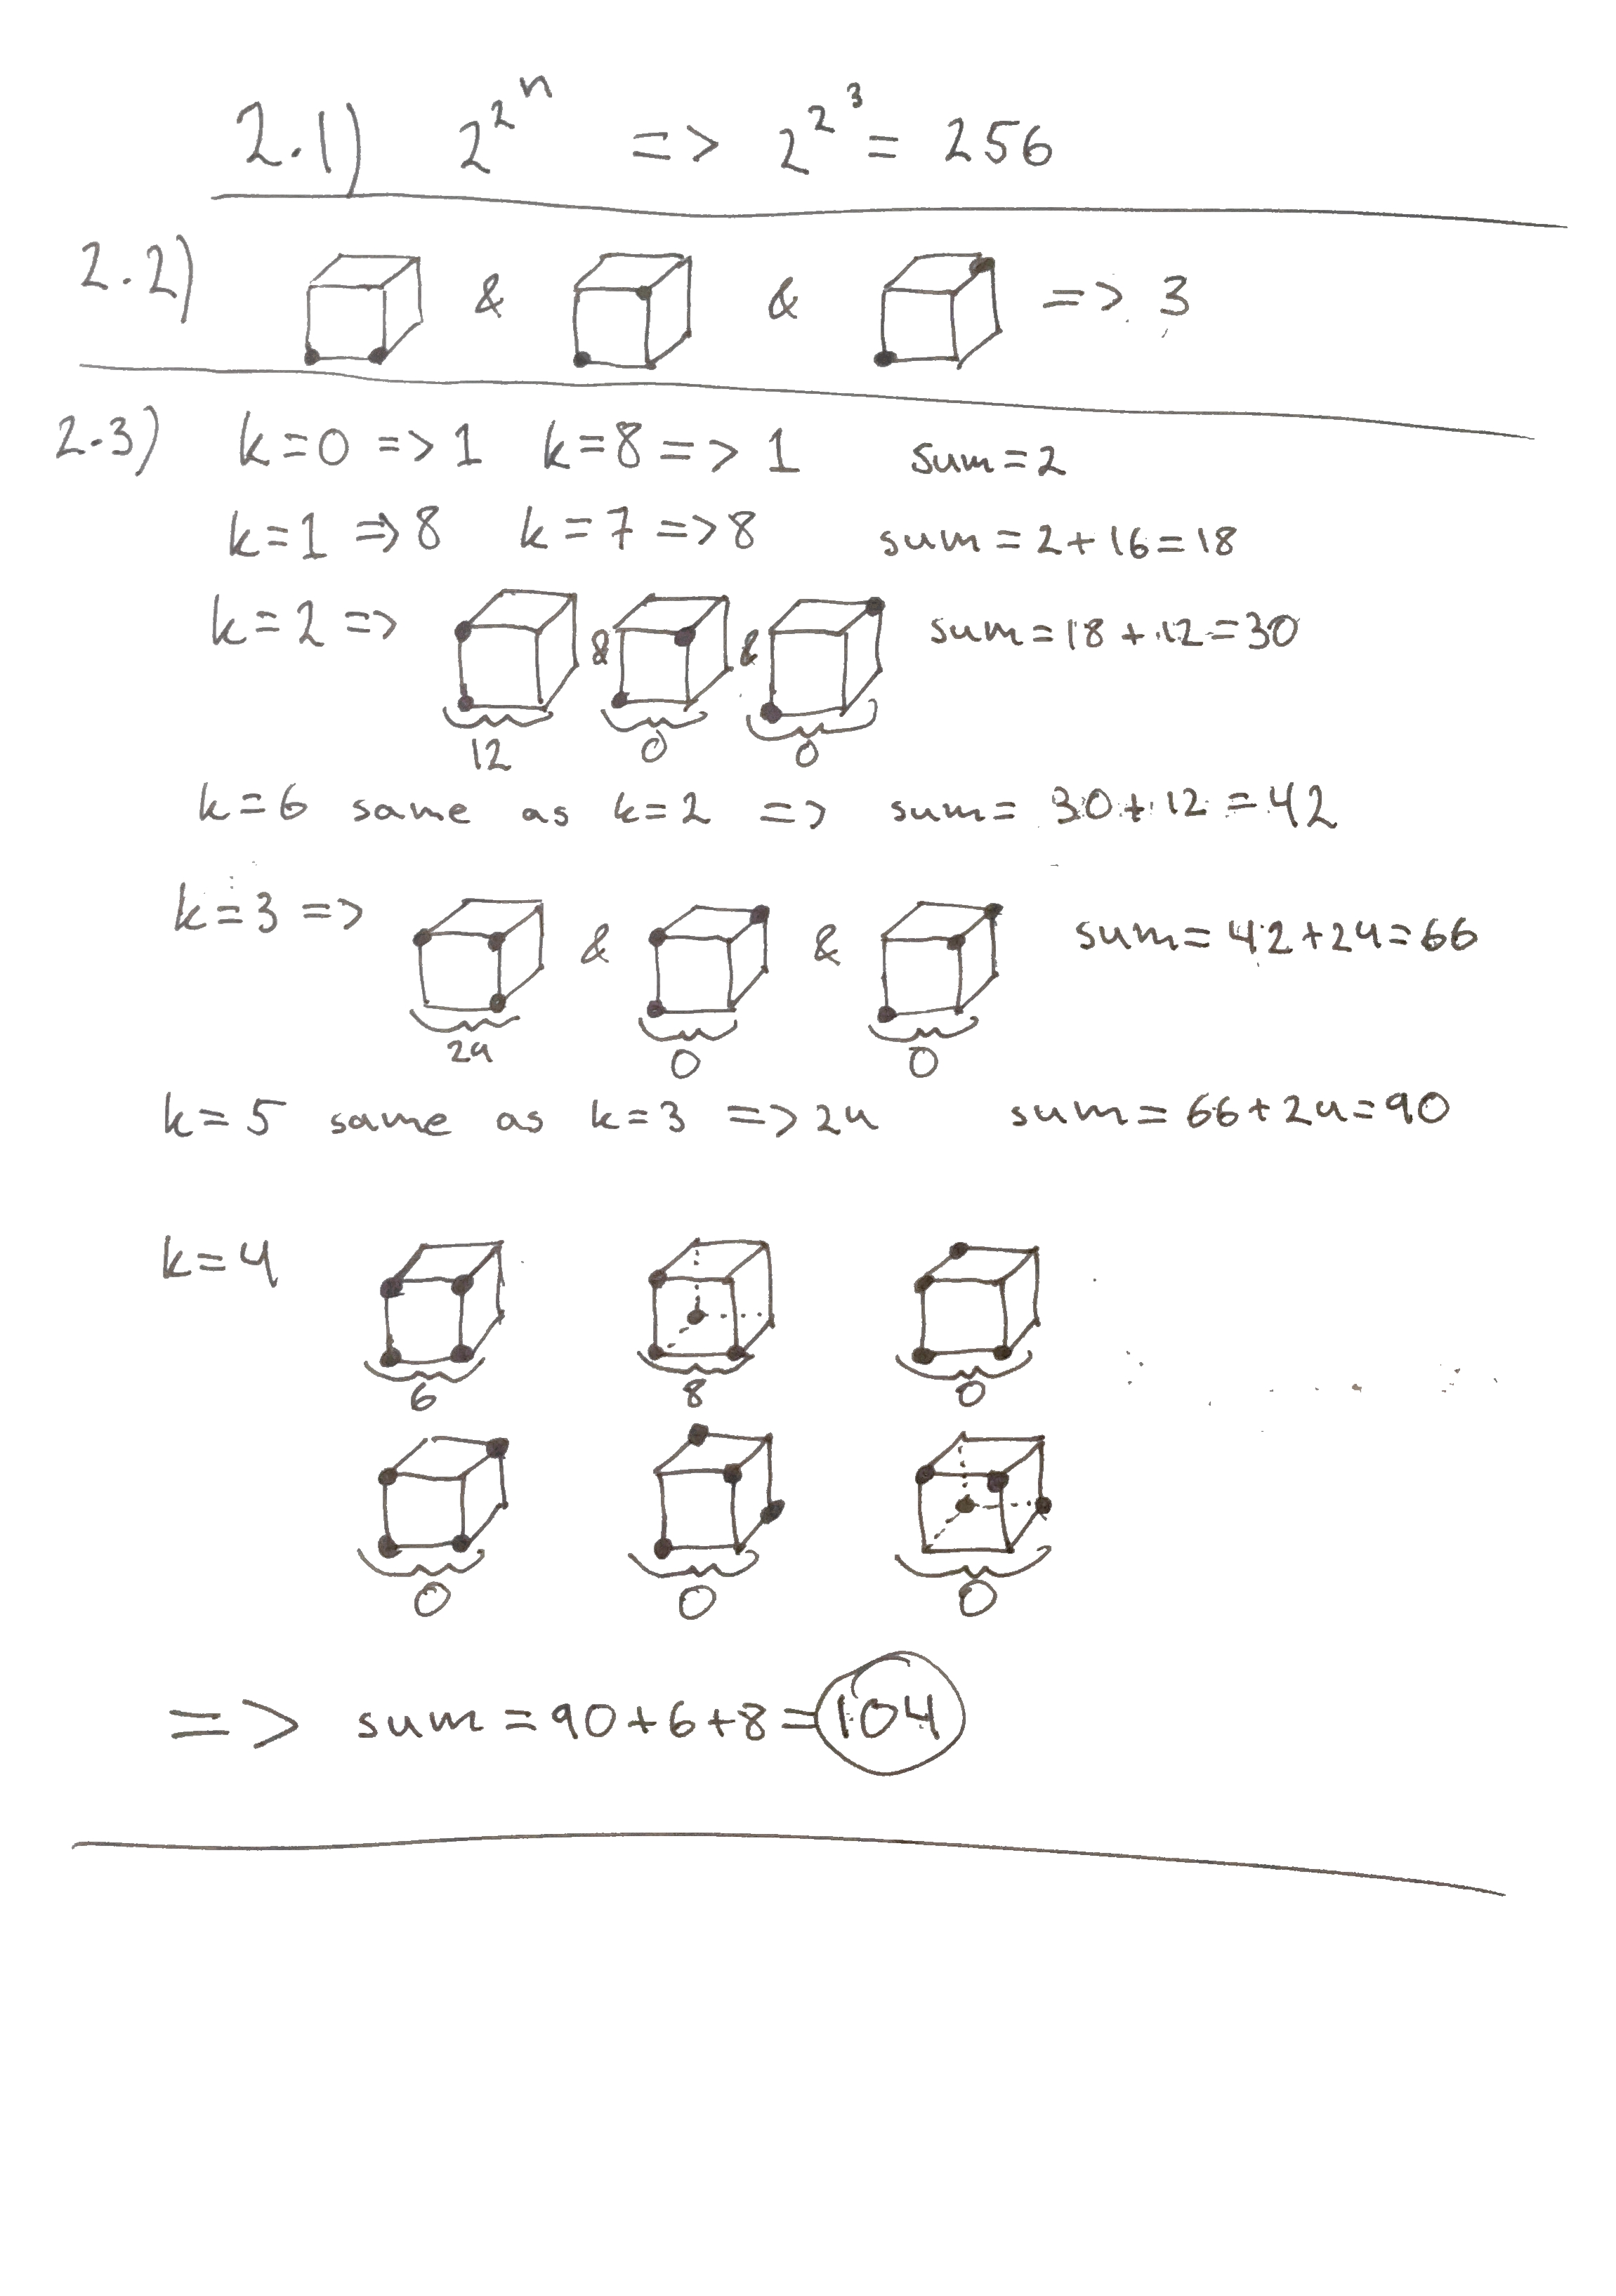 2.1) 2^2^n => 2^2^3 = 256
2.2) & & => 3
2.3) k=0 => 1 k=8 => 1 sum=2
k=1 => 8 k=7 => 8 sum=2+16=18
k=2 => & & sum=18+12=30
12 0 0
k=6 same as k=2 => sum= 30+12=42
k=3 => & & sum=42+24=66
24 0 0
k=5 same as k=3 => 24 sum=66+24=90
k=4
6 8 0
0 0 0
=> sum=90+6+8=104